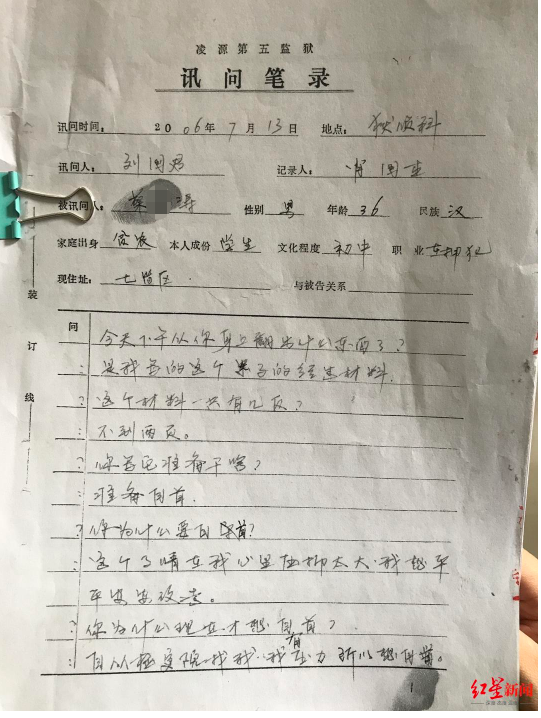 凌源第五监狱
讯问笔录
讯问时间： 2006年7月13日 地点： 狱侦科
讯问人： 刘国 记录人： 国
被讯问人： 涛 性别 男 年龄 36 民族 汉
家庭出身 贫农 本人成份 学生 文化程度 初中 职业 在押犯
现住址： 七监区 与被告关系
装
订
线
问 今天下午从你身上翻出什么东西了？
： 是我写的这个案子的经过材料.
？ 这个材料一共有几页？
： 不到两页。
？ 你写它准备干啥？
： 准备自首.
？ 你为什么要自首？
： 这个事情在我心里压抑太大.我想平
平安安改造。
？ 你为什么现在才想自首？
： 自从检察院找我.我有压力所以想自首。
1
红星新闻